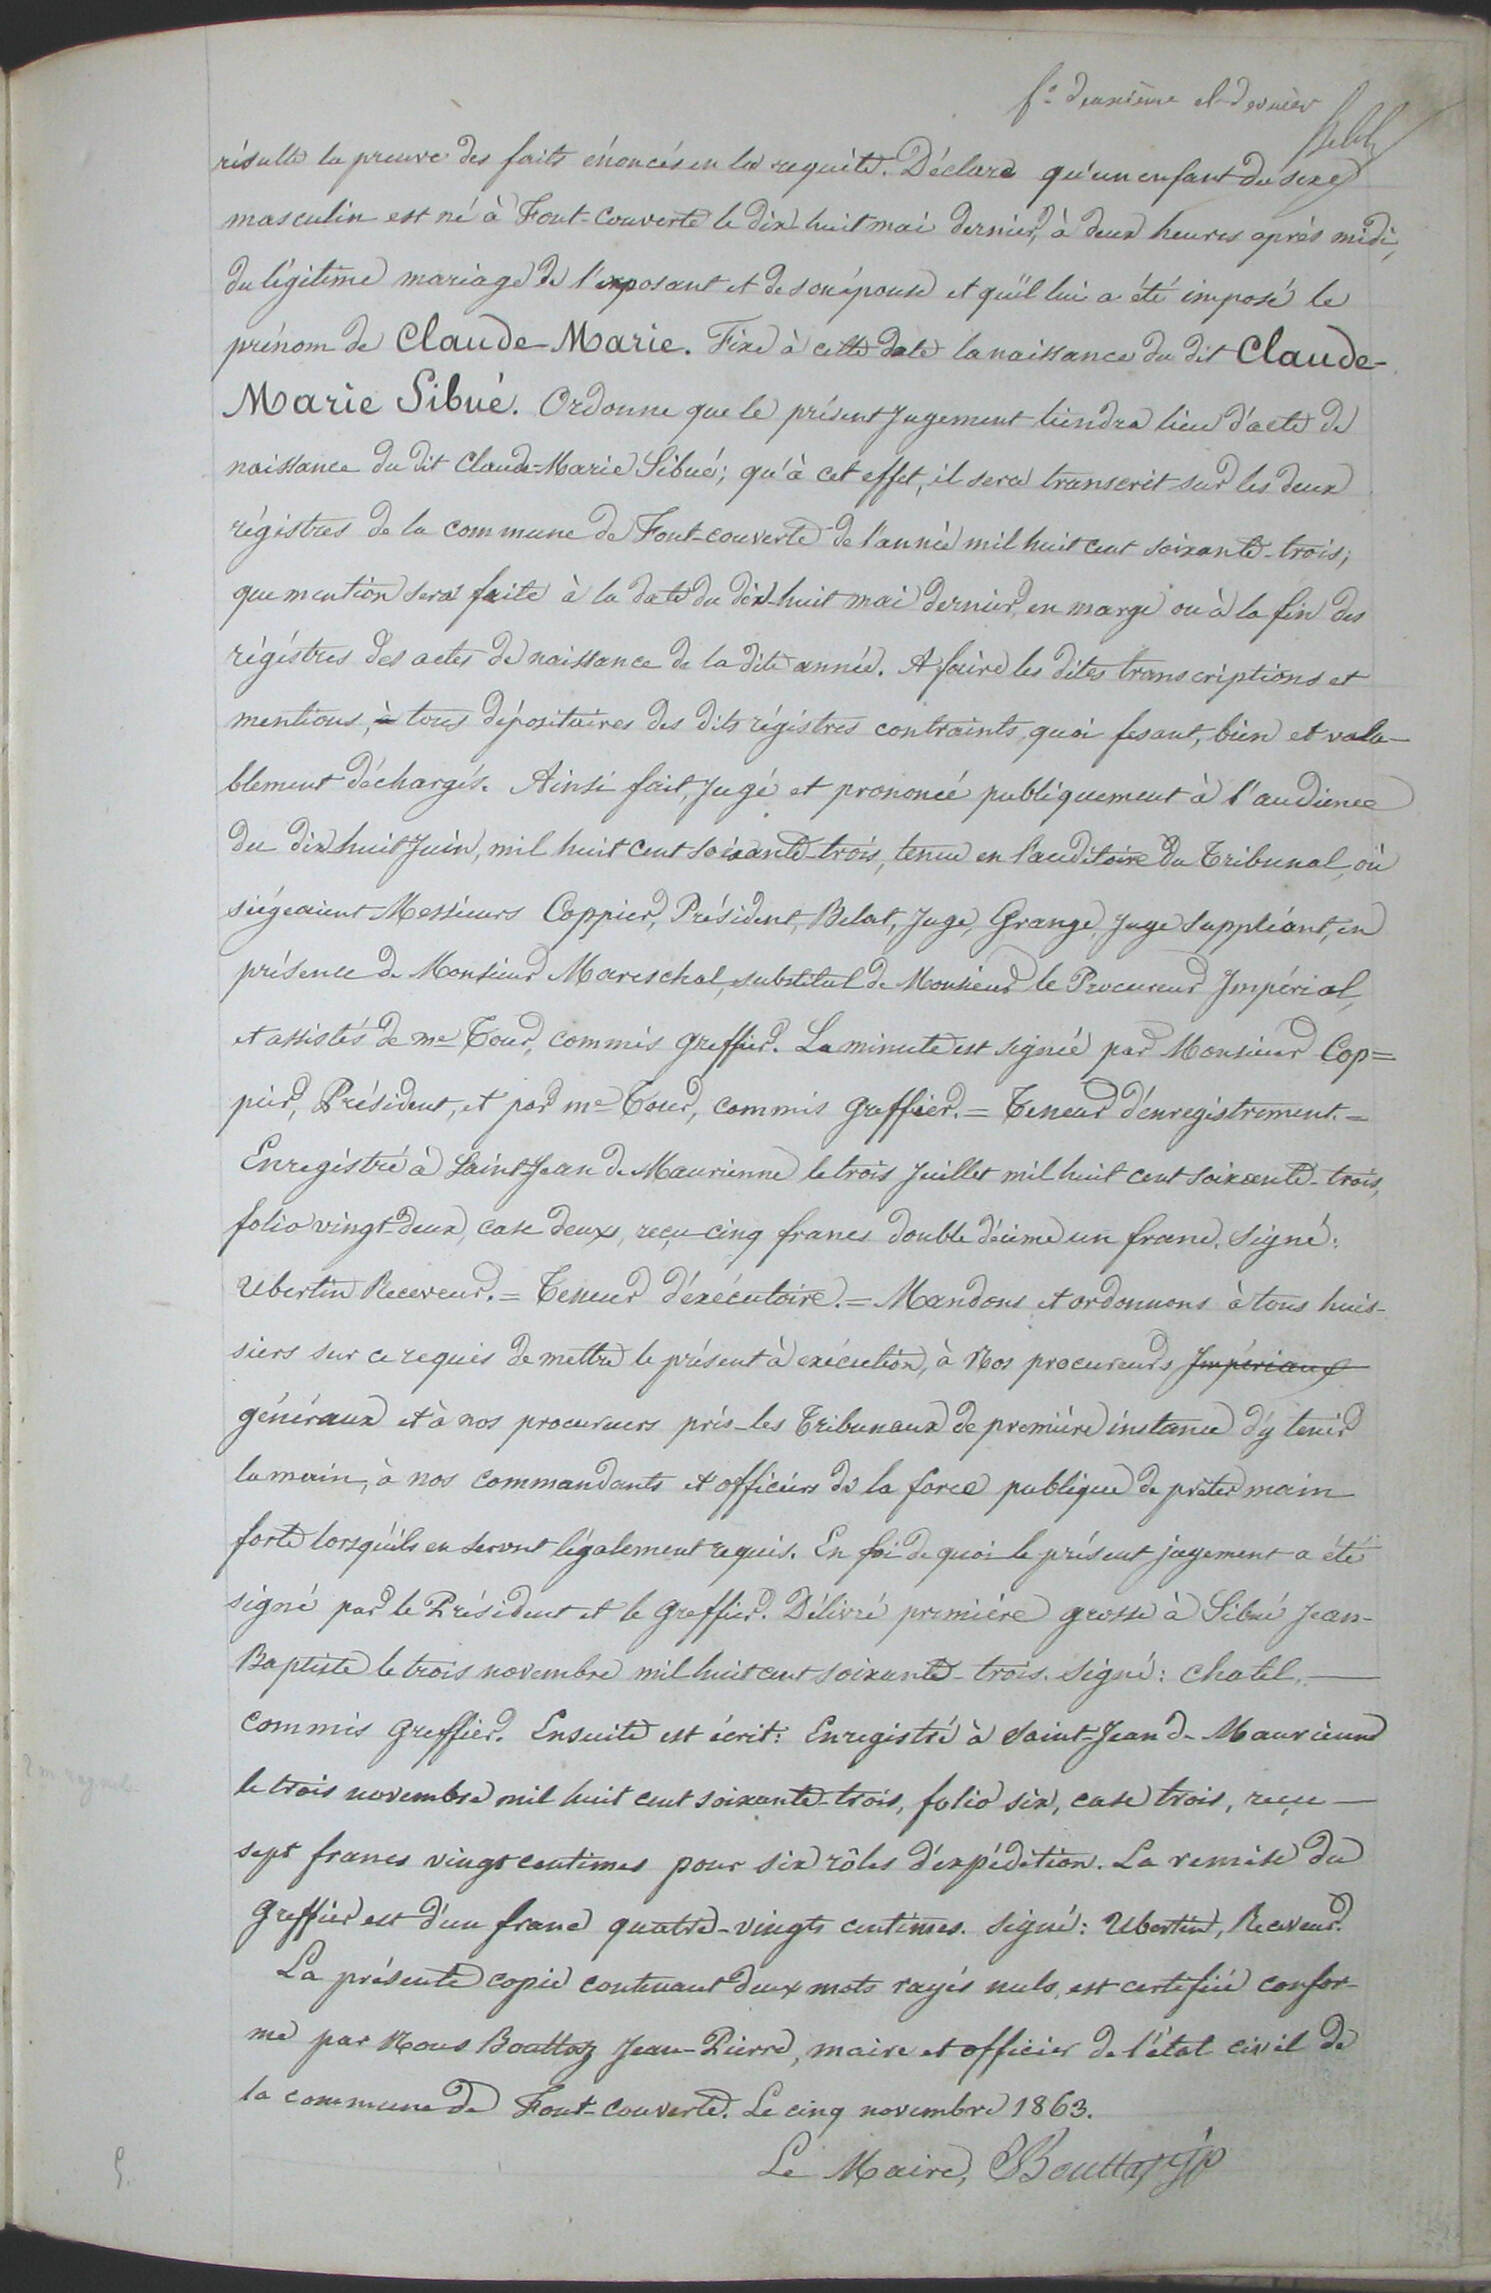 fo deuxième et dernier
résulte la preuve des faits énoncés en la requête. Déclare qu'un enfant du sexe
masculin est né à Font-couverte le dix-huit mai dernier, à deux heures après midi,
du légitime mariage de l'exposant et de son épouse et qu'il lui a été imposé le
prénom de Claude-Marie. Fixe à cette date la naissance du dit Claude-
Marie Sibué. Ordonne que le présent Jugement tiendra lieu d'acte de
naissance du dit Claude-Marie Sibué; qu'à cet effet, il sera transcrit sur les deux
régistres de la commune de Font-couverte de l'année mil huit cent soixante-trois;
que mention sera faite à la date du dix-huit mai dernier, en marge ou à la fin des
régistres des actes de naissance de la dite année. A faire les dites transcriptions et
mentions, à tous dépositaires des dits régistres contraints, quoi fesant, bien et vala-
blement déchargés. Ainsi fait, Jugé et prononcé publiquement à l'audience
du dix huit Juin, mil huit cent soixante-trois, tenue en l'auditoire du Tribunal, où
siégeaient Messieurs Coppier, Président, Belat, Juge, Grange, Juge suppléant, en
présence de Monsieur Mareschal, substitut de Monsieur le Procureur Impérial,
et assistés de me Tour, commis greffier. La minute est signée par Monsieur Cop=
pier, Président, et par me Tour, commis greffier. = Teneur d'enregistrement. =
Enregistré à Saint Jean de Maurienne le trois Juillet mil huit cent soixante-trois,
folio vingt-deux, case deux, reçu cinq francs double décime un franc. Signé:
Ubertin Receveur. = Teneur d'exécutoire. = Mandons et ordonnons à tous huis-
siers sur ce requis de mettre le présent à exécution, à Nos procureurs Impériaux
généraux et à nos procureurs près-les Tribunaux de première instance d'y tenir
la main, à nos commandants et officiers de la force publique de prêter main
forte lorsqu'ils en seront légalement requis. En foi de quoi le présent jugement a été
signé par le Président et le greffier. Délivré première grosse à Sibué Jean-
Baptiste le trois novembre mil huit cent soixante-trois. Signé: Chatel,
commis greffier. Ensuite est écrit: Enregistré à Saint-Jean de Maurienne
le trois novembre mil huit cent soixante-trois, folio six, case trois, reçu
sept francs vingt centimes pour six rôles d'expédition. La remise du
greffier est d'un franc quatre-vingts centimes. Signé: Ubertin, Receveur.
La présente copie contenant deux mots rayés nuls, est certifiée confor-
me par Nous Bouttaz Jean-Pierre, maire et officier de l'état civil de
la commune de Font-couverte. Le cinq novembre 1863.
Le Maire, Bouttaz JP